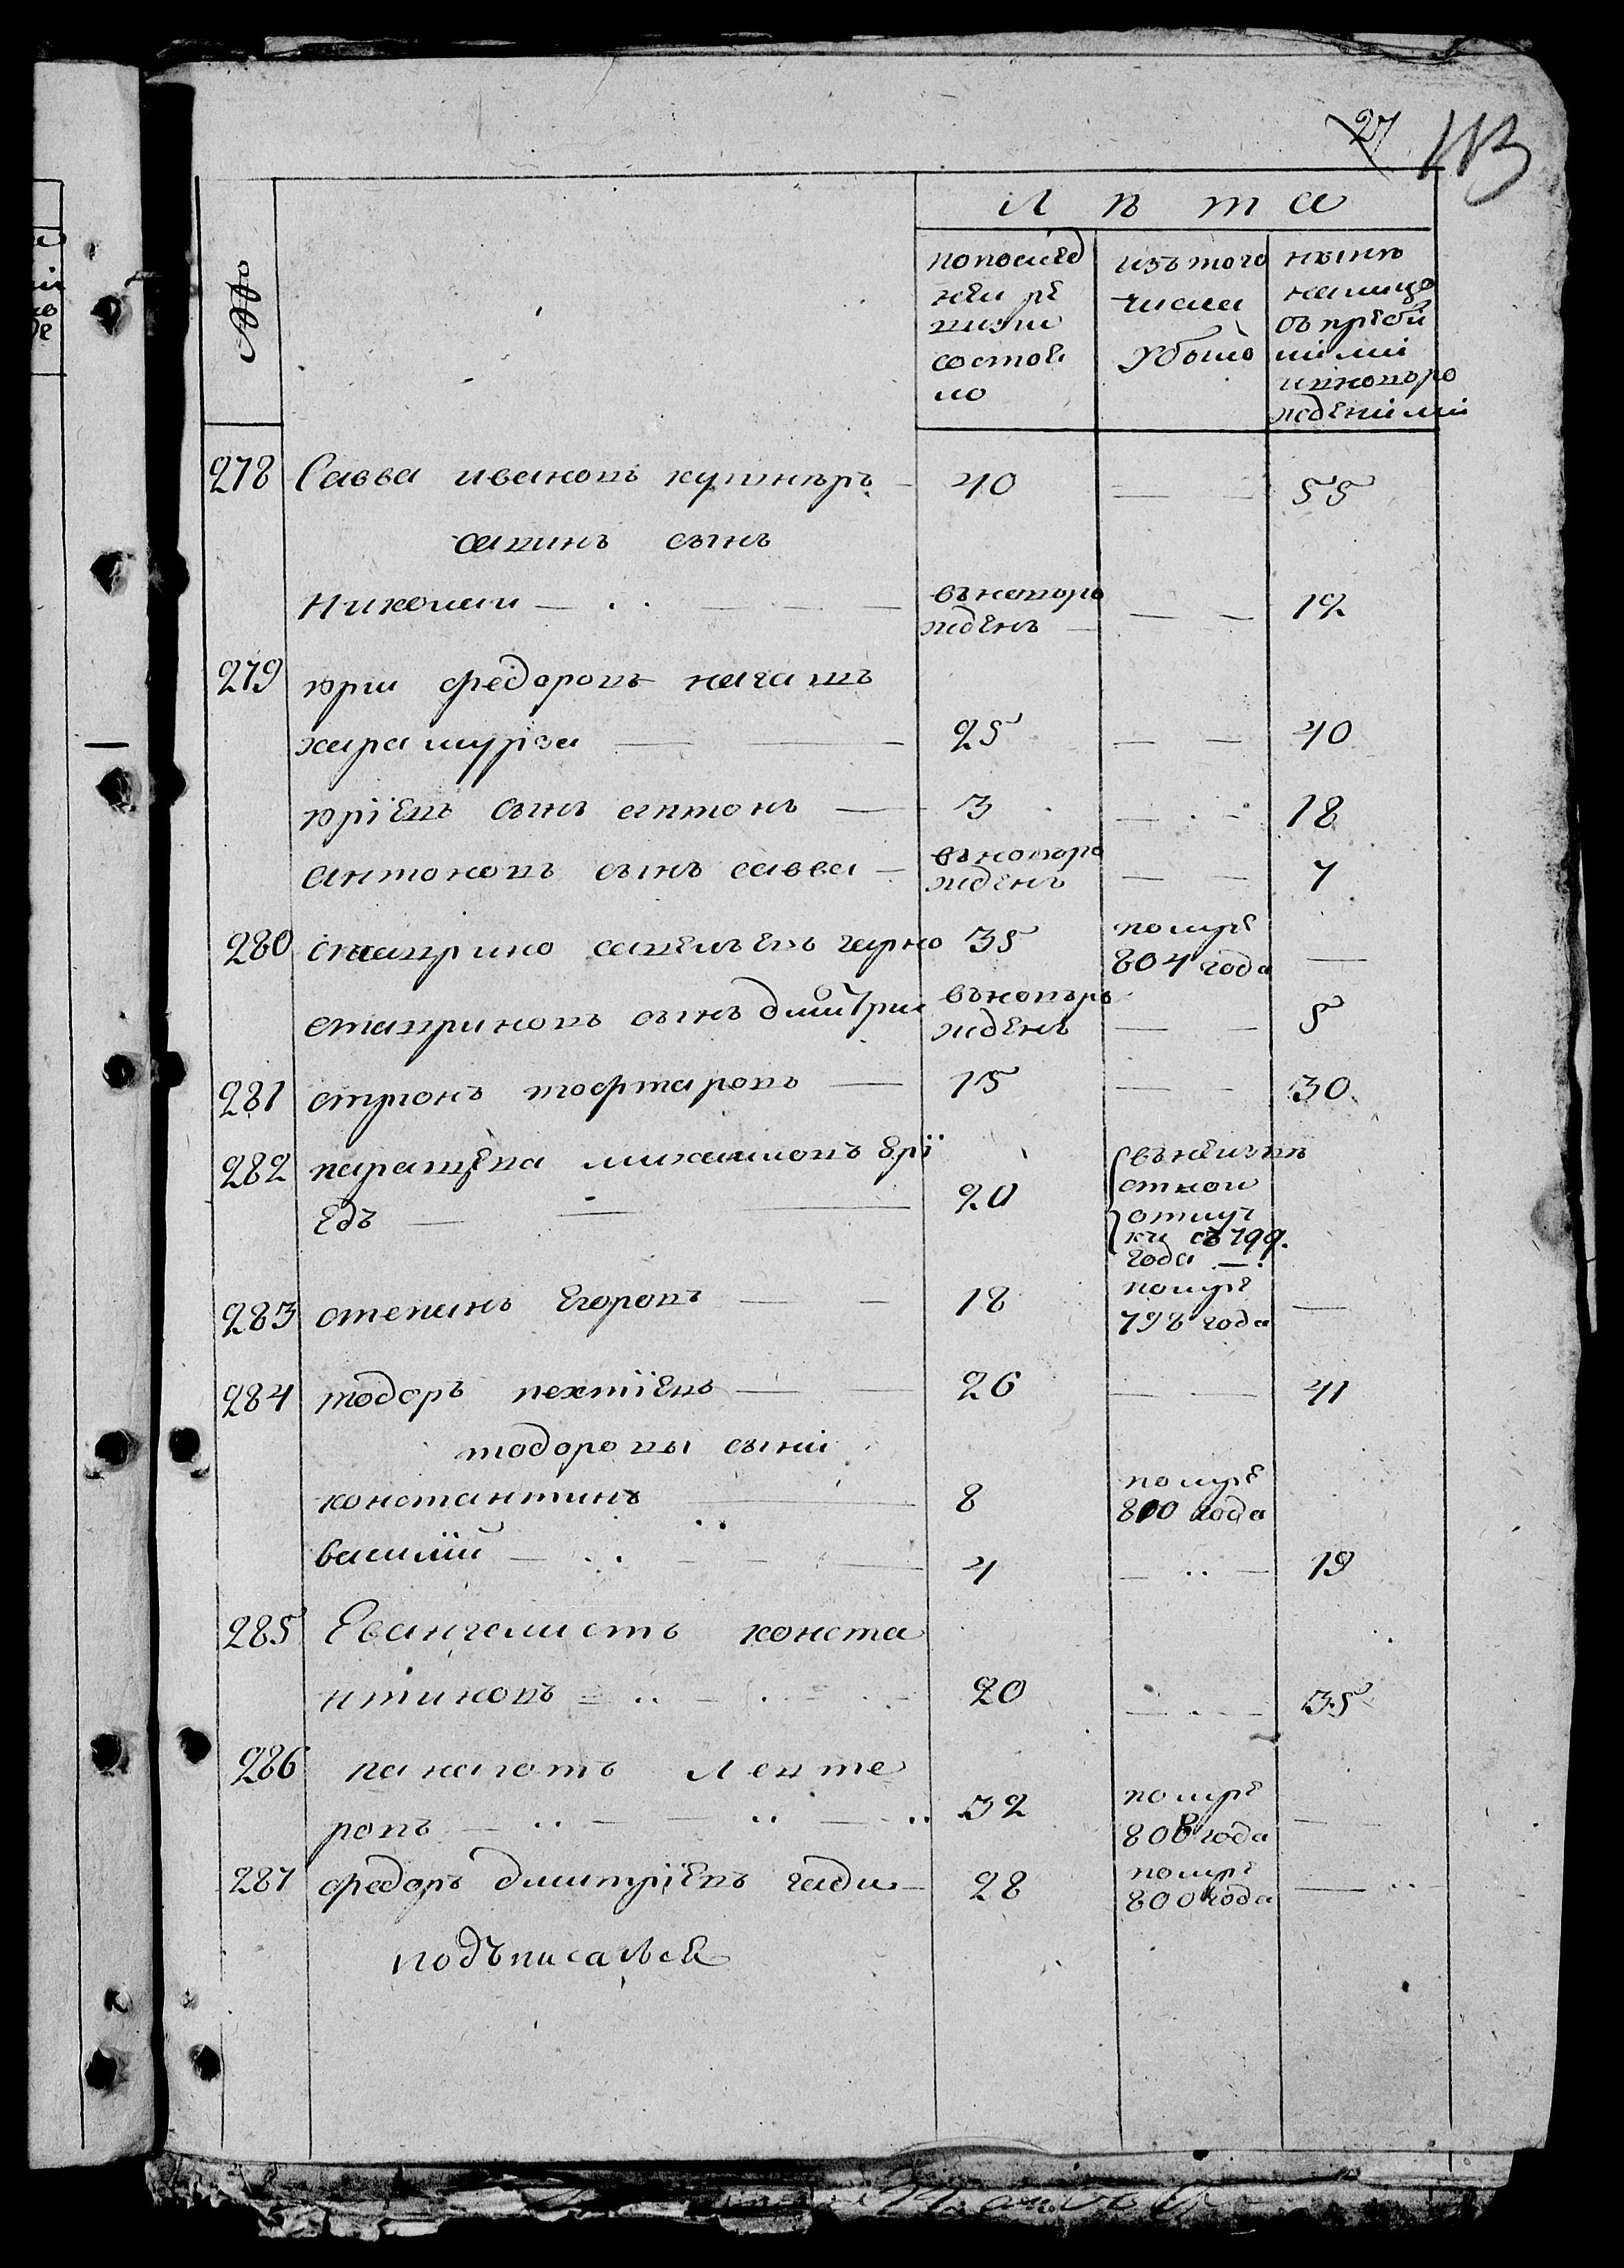 27 113
Лѣта
№№
попослед
неи ре
визи
состоя
ло
изътого
числа
убыло
нынѣ
налицо
съпребы
лыми
иновъро
ждеными
278 Савва ивановъ кушнѣръ 40 — — 55
савинъ сынъ
Николаи — въновъро
жденъ — — 12
279 юри федоровъ нагашъ
карамурза — — 25 — — 40
юріевъ сынъ антонъ — 3 — — 18
антоновъ сынъ савва — въновъро
жденъ — — 7
280 ставрино савельевъ чарно 35 помре
804 года —
ставриновъ сынъ дмитри въновъро
жденъ — — 5
281 стрионъ тофтаровъ — 15 — — 30
282 парашкева михаиловъ ері
едъ — — 20 въ
отлуч
ки съ 799.
года
283 степанъ Егоровъ — — 18 помре
798 года —
284 тодоръ пехтіевъ — — 26 — — 41
тодоровы сыни
константинъ — 8 помре
800 года
василий — — 4 — — 19
285 Евангелистъ конста
нтиновъ — — 20 — — 35
286 панаготъ Лефте
ровъ — — 32 помре
808 года —
287 федоръ дмитріевъ чади — 28 помре
800 года —
подъписалься